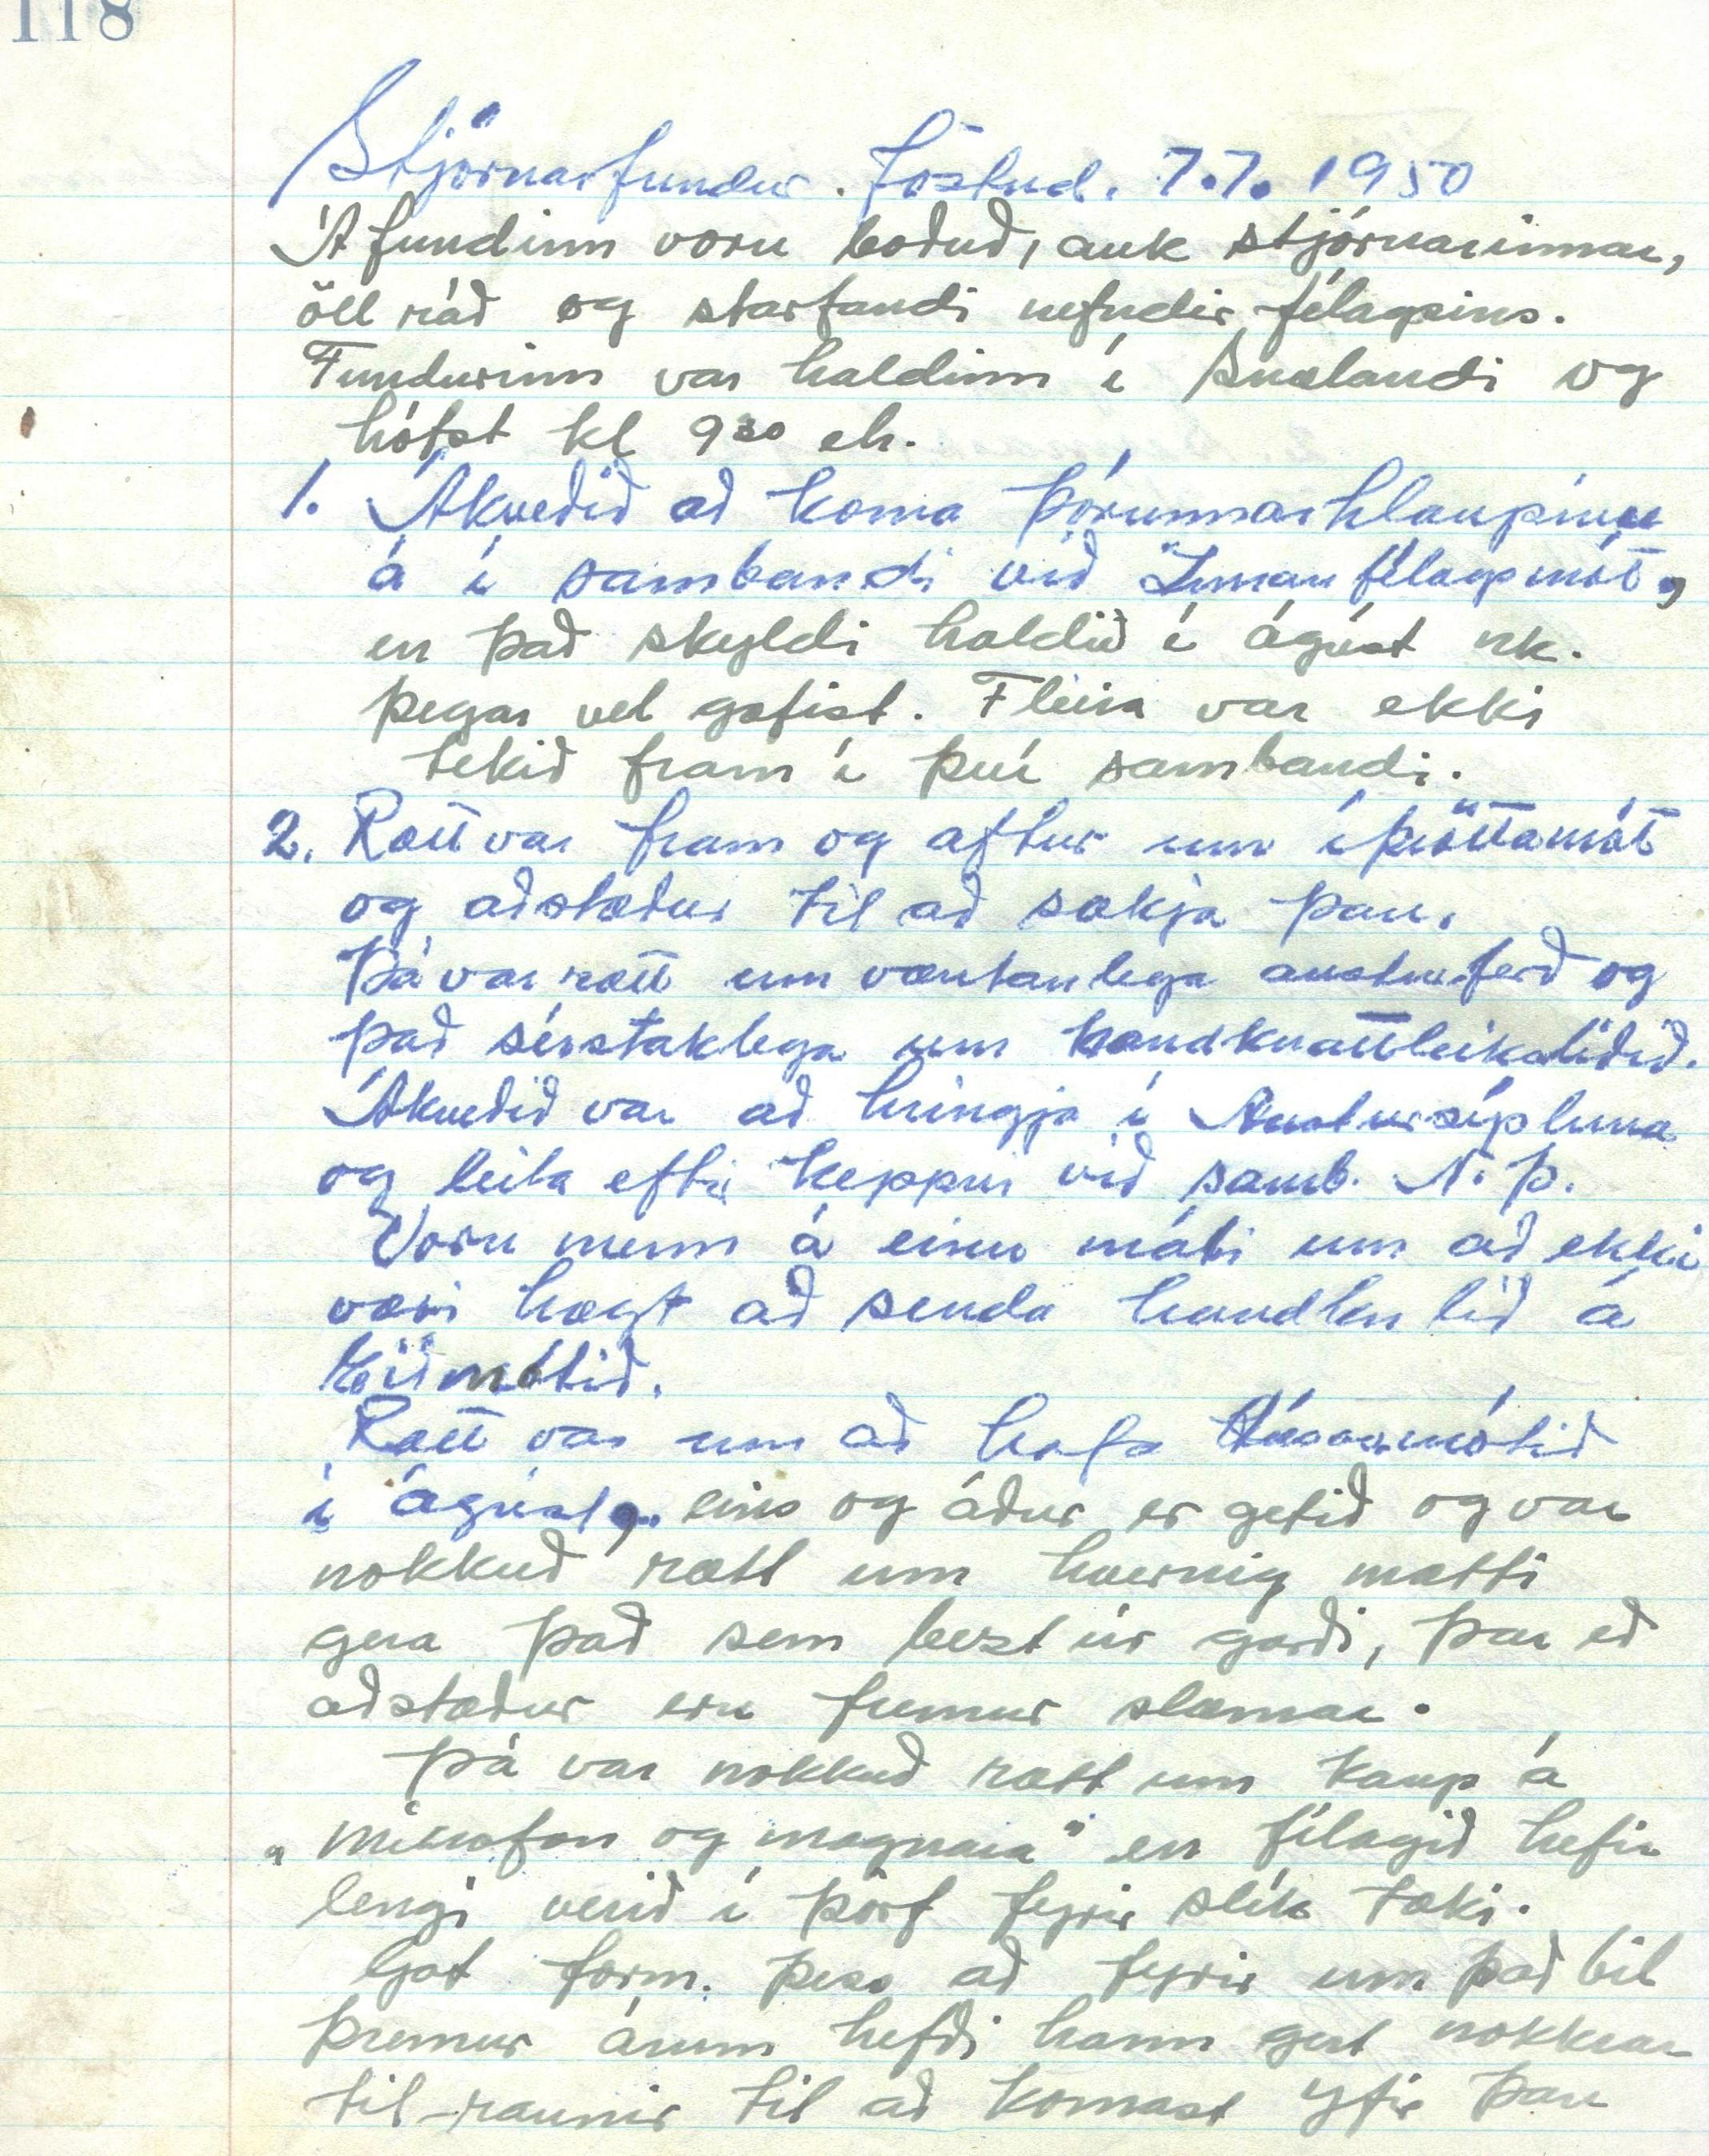 118
Stjórnarfundur. föstud. 7.7. 1950
Á fundinn voru boðuð, auk stjórnarinnar,
öll ráð og starfandi nefndir félagsins.
Fundurinn var haldinn í Snælandi og
hófst kl 9³⁰ eh.
1. Ákveðið að koma Þórunnarhlaupinu
á í sambandi við Innanfélagsmót,
en það skyldi haldið í ágúst nk.
þegar vel gæfist. Fleira var ekki
tekið fram í því sambandi.
2. Rætt var fram og aftur um íþróttamót
og aðstæður til að sækja þau.
Þá var rætt um væntanlega austurferð og
það sérstaklega um handknattleiksliðið.
Ákveðið var að hringja í Austursýsluna
og leita eftir keppni við samb. N.Þ.
Voru menn á einu máli um að ekki
væri hægt að senda handkn lið á
mótið.
Rætt var um að hafa
í ágúst, eins og áður er getið og var
nokkuð rætt um hvernig mætti
gera það sem bezt úr garði, þar eð
aðstæður eru fremur slæmar.
Þá var nokkuð rætt um kaup á
„mikrofon og magnara" en félagið hefir
lengi verið í þörf fyrir slík tæki.
Gat form. þess að fyrir um það bil
þremur árum hefði hann gert nokkrar
til-raunir til að komast yfir þau